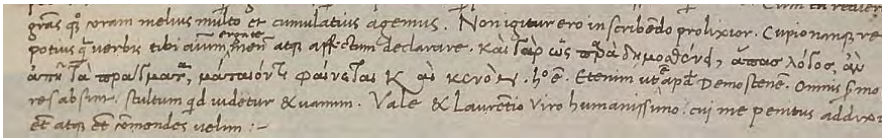 gras qz coram melius multo et cumulatius agemus. Non igitur ero in scribendo prolixior. Cupio nanque re
potius q verbis tibi animum erga te meum atque affectum declarare. Καὶ γὰρ ὡς παρὰ δημοσθένει, ἅπας λόγος, ἂν
ἀπῇ τὰ πράγματα, μάταιόν τι φαίνεται κ αὶ κενόν. h e. Etenim ut apud Demostenem. Omnis sermo
res absint. stultum quid videtur & vanum. Vale & Laurentio Viro humanissimo. cui me penitus addixi
etc atque etc comendes velim :-